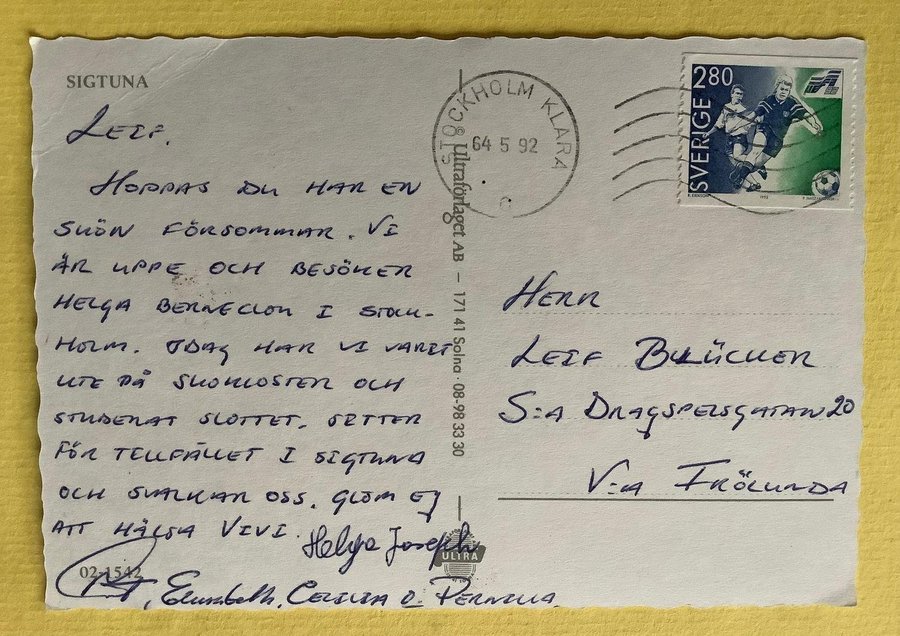 SIGTUNA
LEIF.
HOPPAS DU HAR EN
SKÖN FÖRSOMMAR. VI
ÄR UPPE OCH BESÖKER
HELGA I STOCK-
HOLM. IDAG HAR VI VARIT
UTE PÅ SKOKLOSTER OCH
STUDERAT SLOTTET. SITTER
FÖR TILLFÄLLET I SIGTUNA
OCH SVALKAR OSS. GLÖM EJ
ATT HÄLSA VIVI. Helga Joseph
02-1542
Elisabeth, CECILIA O PERNILLA
© Ultraförlaget AB – 171 41 Solna · 08-98 33 30
ULTRA
STOCKHOLM KLARA
64 5 92
SVERIGE 280
1992
HERR
LEIF BLÜCHER
S:A DRAGSPELSGATAN 20
V:A FRÖLUNDA